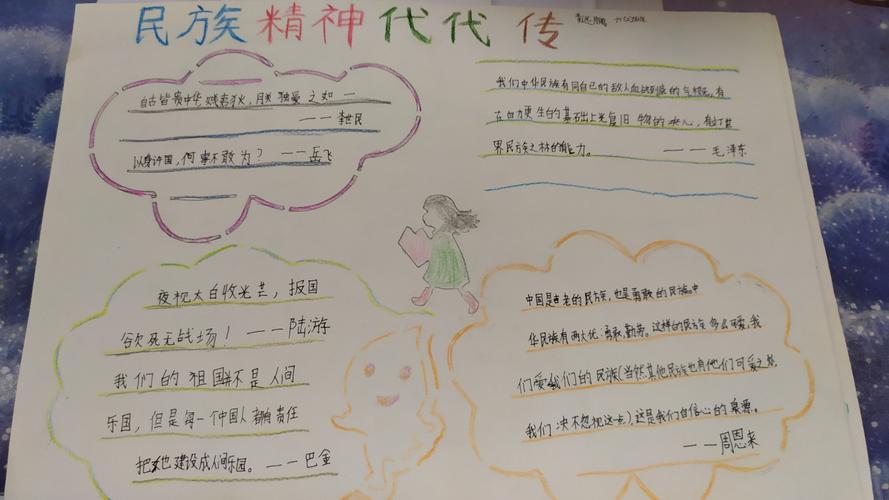 民族精神代代传
自古皆贵中华，贱夷狄，朕独爱之如一
——李世民
以身许国，何事不敢为？——岳飞
我们中华民族有同自己的敌人血战到底的气概，有
在自力更生的基础上光复旧物的决心，有
界民族之林的能力。——毛泽东
夜视太白收光芒，报国
欲死无战场！——陆游
我们的祖国并不是人间
乐园，但是每一个中国人都有责任
把她建设成人间乐园。——巴金
中国是古老的民族，也是勇敢的民族。中
华民族有两大优：勇敢，勤劳。这样的民族多么可爱，我
们爱我们的民族（当然其他民族也有他们可爱之处，
我们决不忽视这点），这是我们自信心的泉源。
——周恩来